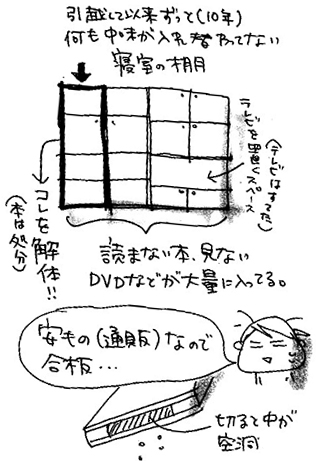 引越して以来ずっと(10年)
何も中味が入れ替わってない
寝室の棚
テレビを置くスペース
(テレビはすてた)
コレを解体!!
(本は処分)
読まない本、見ない
DVDなどが大量に入ってる。
安もの(通販)なので
合板…
切ると中が
空洞